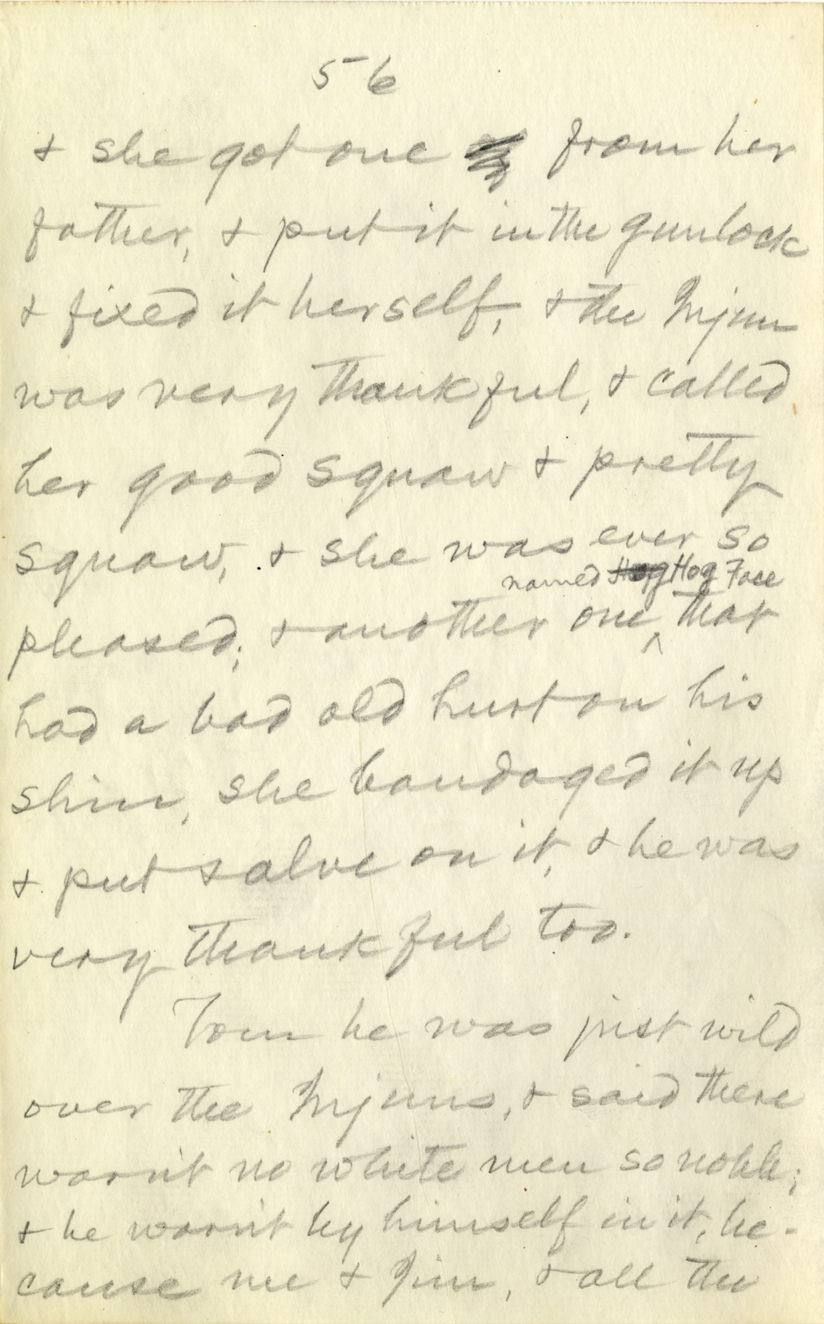 56
& she got one from her
father, & put it in the gunlock
& fixed it herself, & the Injun
was very thankful, & called
her good squaw & pretty
squaw, & she was ever so
named Hog Hog Face
pleased; & another one ^ that
had a bad old hurt on his
shin, she bandaged it up
& put salve on it, & he was
very thankful too.
Tom he was just wild
over the Injuns, & said there
warn't no white men so noble;
& he warn't by himself in it, be-
cause me & Jim, & all the